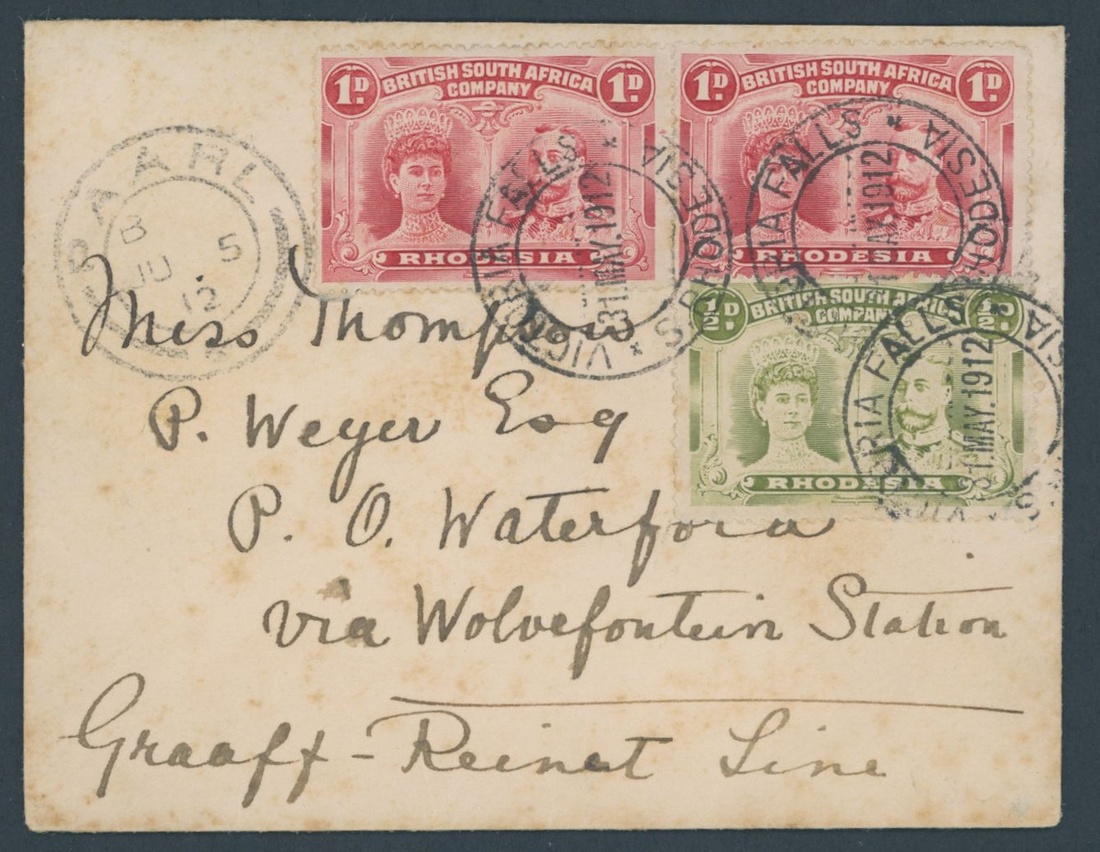 1D BRITISH SOUTH AFRICA COMPANY 1D
RHODESIA
1D BRITISH SOUTH AFRICA
RHODESIA
½D BRITISH SOUTH AFRICA COMPANY ½D
RHODESIA
PAARL
B 5
JU
12
VICTORIA FALLS * S. RHODESIA *
31 MAY. 1912
RIA FALLS * RHODESIA
MAY. 1912
RIA FALLS
1. MAY. 1912
Miss Thompson
P. Weyer Esq
P. O. Waterford
via Wolvefontein Station
Graaff-Reinet Line